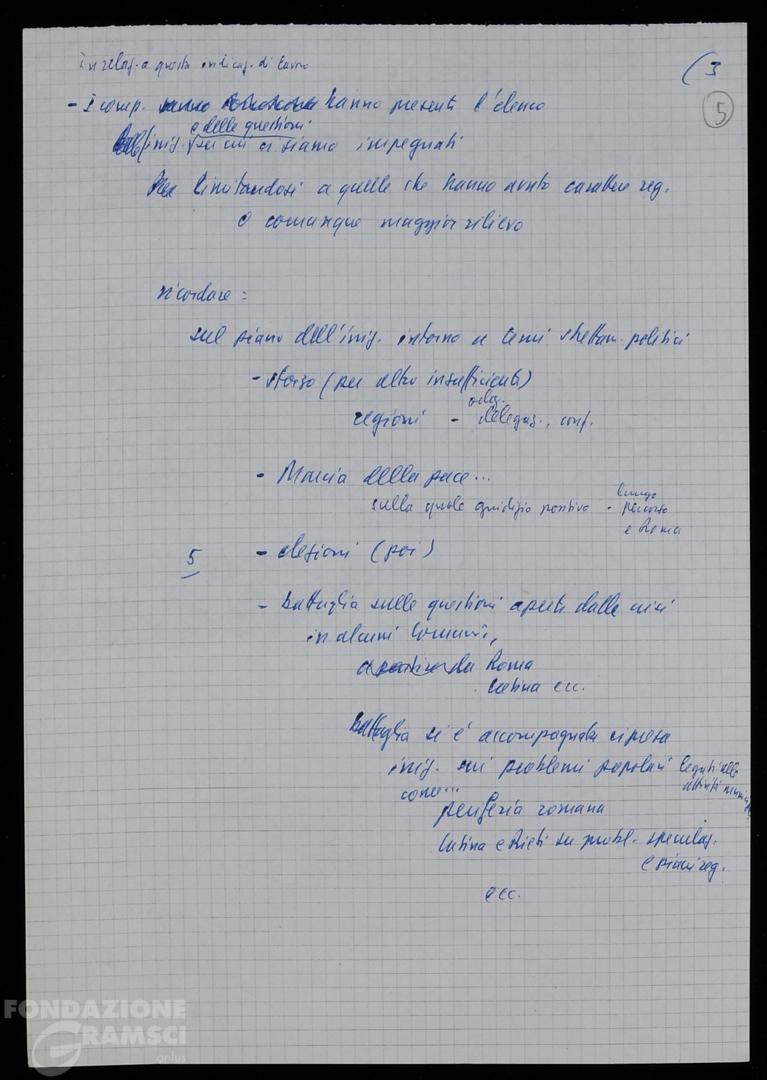 in relaz. a queste indicaz. di lavoro
(3
5
- I comp. hanno presenti l'elenco
e delle questioni
iniz. per cui ci siamo impegnati
limitandosi a quelle che hanno avuto carattere reg.
o comunque maggior rilievo
ricordare :
sul piano dell'iniz. intorno a temi strettam. politici
- sforzo (per altro insufficiente)
regioni - delegaz., conf.
- Marcia della pace ...
sulla quale giudizio positivo - lungo
percorso
e Roma
5
- elezioni (poi)
- battaglia sulle questioni aperte dalle crisi
in alcuni Comuni,
a partire da Roma
Latina ecc.
battaglia si è accompagnata ripresa
iniz. sui problemi popolari legati alle
attività
come ...
periferia romana
Latina e Rieti su probl. speculaz.
e piani reg.
ecc.
FONDAZIONE
GRAMSCI
onlus